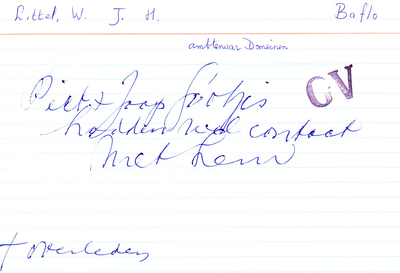 Littel, W. J. H. Baflo
ambtenaar Domeinen
CV
Piet & Joop
hadden veel contact
met hem
† overleden